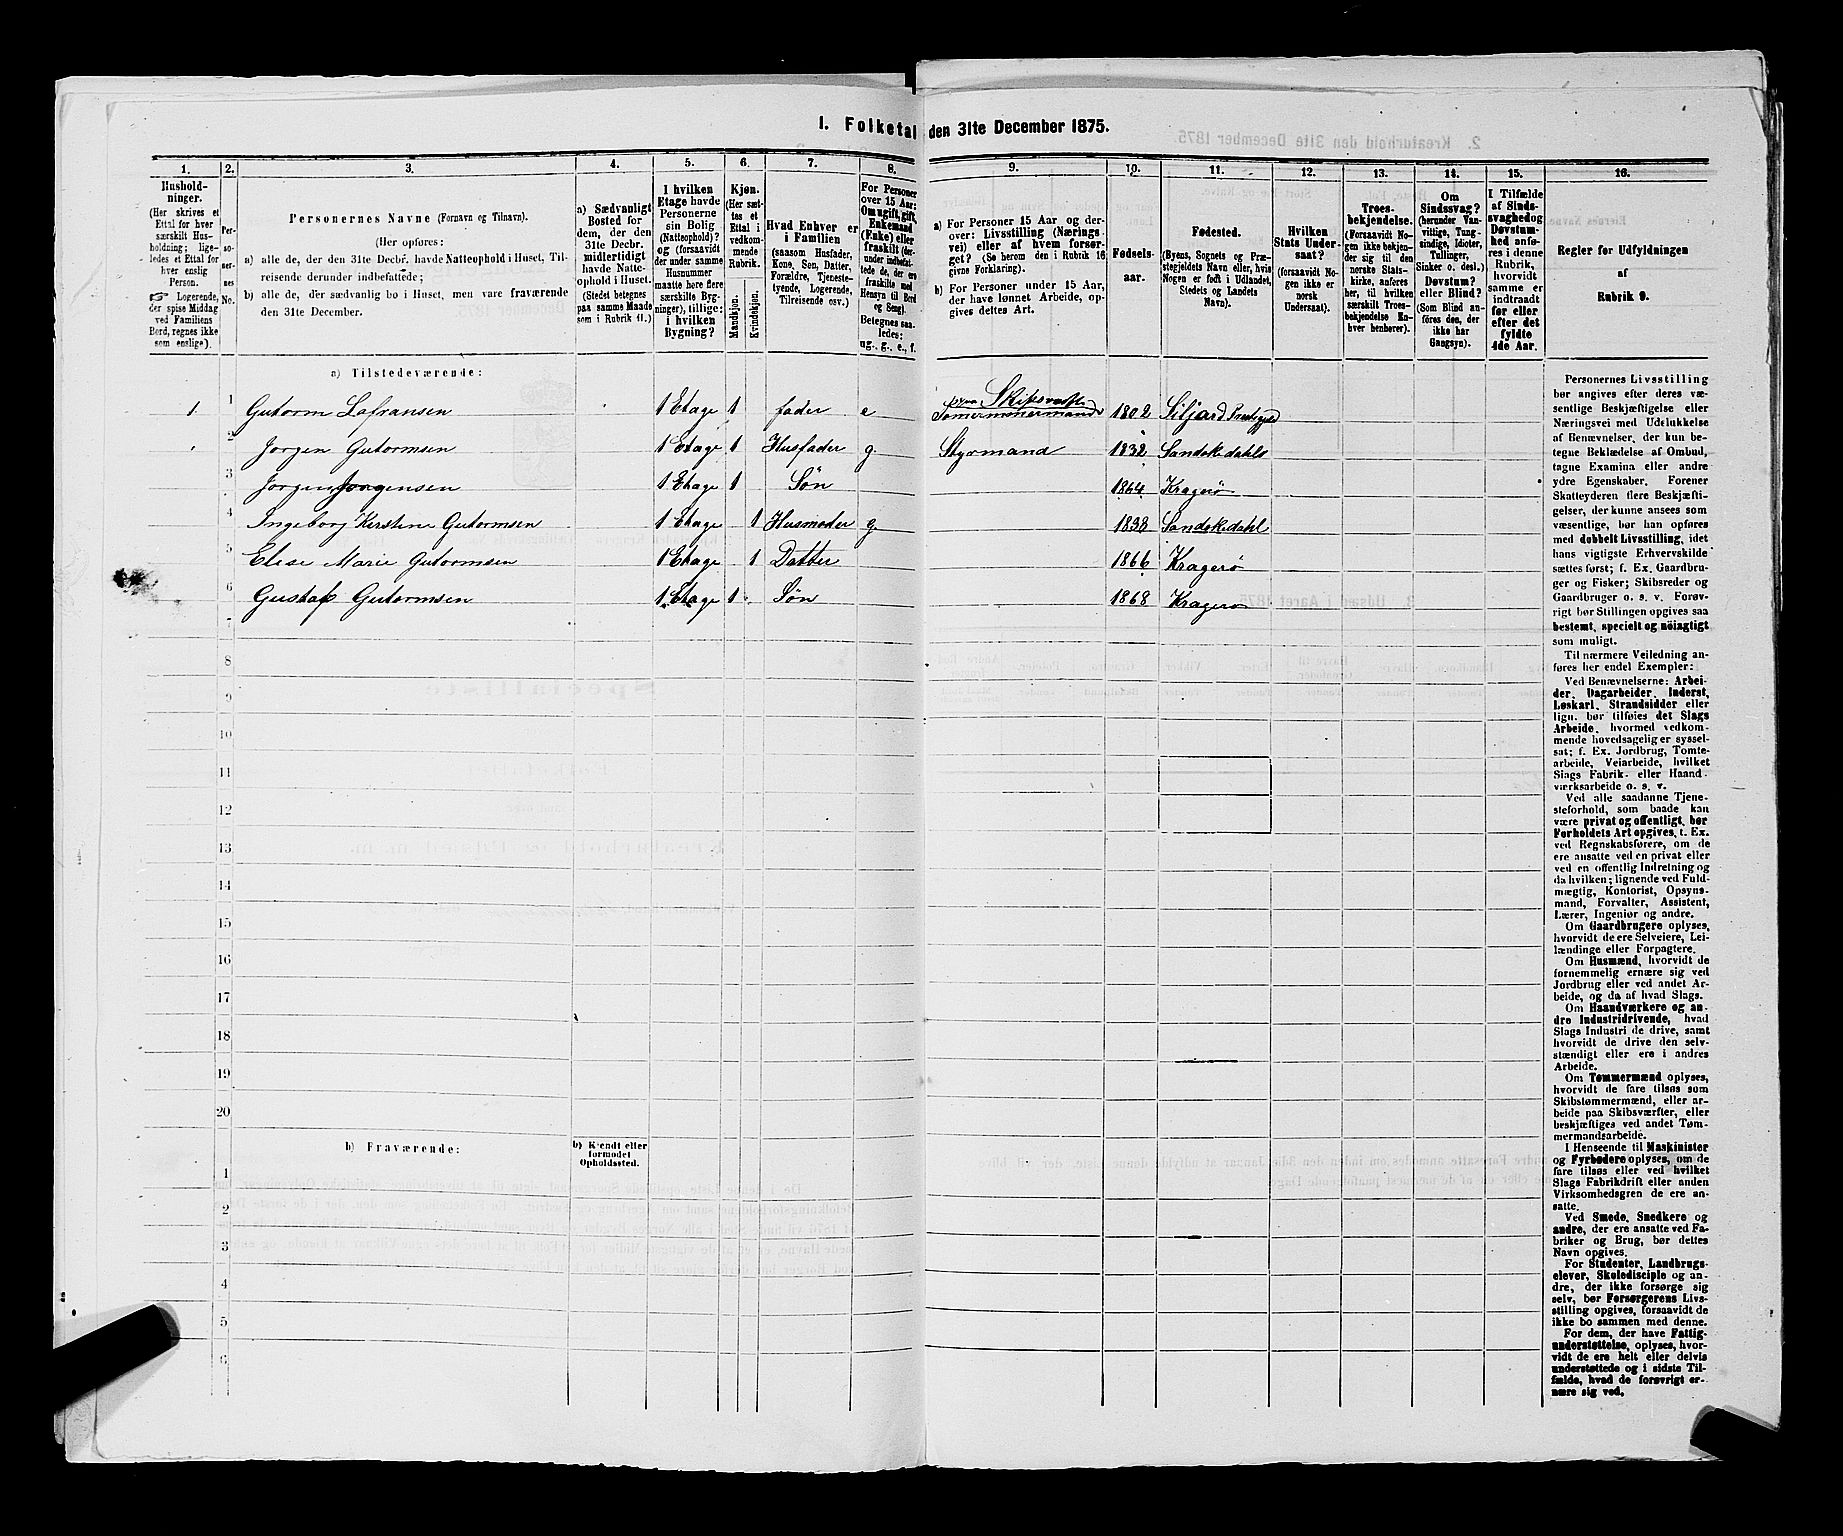 1. Folketal den 31te December 1875.
1. 2. 3. 4. 5. 6. 7. 8. 9. 10. 11. 12. 13. 14. 15. 16.
Hushold-
ninger.
(Her skrives et
Ettal for hver
særskilt Hus-
holdning; lige-
ledes et Ettal for
hver enslig
Person.
☞ Logerende,
der spise Middag
ved Familiens
Bord, regnes ikke
som enslige).
Per-
so-
ner-
nes
No.
Personernes Navne (Fornavn og Tilnavn).
(Her opføres:
a) alle de, der den 31te Decbr. havde Natteophold i Huset, Til-
reisende derunder indbefattede;
b) alle de, der sædvanlig bo i Huset, men vare fraværende
den 31te December.
a) Sædvanligt
Bosted for
dem, der den
31te Decbr.
midlertidigt
havde Natte-
ophold i Huset.
(Stedet betegnes
paa samme Maade
som i Rubrik 11.)
I hvilken
Etage havde
Personerne
sin Bolig
(Natteophold)?
og (forsaavidt
der under samme
Husnummer
maatte høre flere
særskilte Byg-
ninger), tillige:
i hvilken
Bygning?
Kjøn.
(Her sæt-
tes et
Ettal i
vedkom-
mende
Rubrik.
Mandkjøn.
Kvindekjøn.
Hvad Enhver er
i Familien
(saasom Husfader,
Kone, Søn, Datter,
Forældre, Tjeneste-
tyende, Logerende,
Tilreisende osv.)
For Personer
over 15 Aar:
Om ugift, gift,
Enkemand
(Enke) eller
fraskilt (der-
under indbefat-
tede de, der ere
fraskilte med
Hensyn til Bord
og Seng).
Betegnes saa-
ledes:
ug., g., e., f.
a) For Personer 15 Aar og der-
over: Livsstilling (Nærings-
vei) eller af hvem forsør-
get? (Se herom den i Rubrik 16
givne Forklaring).
b) For Personer under 15 Aar,
der have lønnet Arbeide, op-
gives dettes Art.
Fødsels-
aar.
Fødested.
(Byens, Sognets og Præ-
stegjeldets Navn eller, hvis
Nogen er født i Udlandet,
Stedets og Landets
Navn).
Hvilken
Stats Under-
saat?
(forsaavidt No-
gen ikke er
norsk
Undersaat).
Troes-
bekjendelse.
(Forsaavidt No-
gen ikke bekjen-
der sig til den
norske Stats-
kirke, anføres
her, til hvilken
særskilt Troes-
bekjendelse En-
hver henhører).
Om
Sindssvag?
(herunder Van-
vittige, Tung-
sindige, Idioter,
Tullinger,
Sinker o. desl.)
Døvstum?
eller Blind?
(Som Blind an-
føres den, der
ikke har
Gangsyn).
I Tilfælde
af Sinds-
svaghed og
Døvstum-
hed anfø-
res i denne
Rubrik,
hvorvidt
samme er
indtraadt
før eller
efter det
fyldte
4de Aar.
Regler for Udfyldningen
af
Rubrik 9.
a) Tilstedeværende:
1. 1 Gutorm Lafransen 1 Etage 1 fader e Skibsværft Tømermmermand 1802 Siljard
2 Jørgen Gutormsen 1 Etage 1 Husfader g Styrmand 1832 Sandøkedahls
3 Jørgen Jørgensen 1 Etage 1 Søn 1864 Kragerø
4 Ingeborg Kerstine Gutormsen 1 Etage 1 Husmoder g 1838 Sandøkedahl
5 Elise Marie Gutormsen 1 Etage 1 Datter 1866 Kragerø
6 Gustaf Gutormsen 1 Etage 1 Søn 1868 Kragerø
7
8
9
10
11
12
13
14
15
16
17
18
19
20
b) Fraværende:
b) Kjendt eller
formodet
Opholdssted.
1
2
3
4
5
6
Personernes Livsstilling
bør angives efter deres væ-
sentlige Beskjæftigelse eller
Næringsvei med Udelukkelse
af Benævnelser, der kun be-
tegne Beklædelse af Ombud,
tagne Examina eller andre
ydre Egenskaber. Forener
Skatteyderen flere Beskjæfti-
gelser, der kunne ansees som
væsentlige, bør han opføres
med dobbelt Livsstilling, idet
hans vigtigste Erhvervskilde
sættes først; f. Ex. Gaardbru-
ger og Fisker; Skibsreder og
Gaardbruger o. s. v. Forøv-
rigt bør Stillingen opgives saa
bestemt, specielt og nöiagtigt
som muligt.
Til nærmere Veiledning an-
føres her endel Exempler:
Ved Benævnelserne: Arbei-
der, Dagarbeider, Inderst,
Løskarl, Strandsidder eller
lign. bør tilføies det Slags
Arbeide, hvormed vedkom-
mende hovedsagelig er syssel-
sat; f. Ex. Jordbrug, Tomte-
arbeide, Veiarbeide, hvilket
Slags Fabrik- eller Haand-
værksarbeide o. s. v.
Ved alle saadanne Tjene-
steforhold, som baade kan
være privat og offentligt, bør
Forholdets Art opgives, t. Ex.
ved Regnskabsførere, om de
ere ansatte ved en privat eller
ved en offentlig Indretning og
da hvilken; lignende ved Fuld-
mægtig, Kontorist, Opsyns-
mand, Forvalter, Assistent,
Lærer, Ingeniør og andre.
Om Gaardbrugere oplyses,
hvorvidt de ere Selveiere, Lei-
lændinge eller Forpagtere.
Om Husmænd, hvorvidt de
fornemmelig ernære sig ved
Jordbrug eller ved andet Ar-
beide, og da af hvad Slags.
Om Haandværkere og an-
dre Industridrivende, hvad
Slags Industri de drive, samt
hvorvidt de drive den selv-
stændigt eller ere i andres
Arbeide.
Om Tømmermænd oplyses,
hvorvidt de fare tilsøs som
Skibstømmermænd, eller ar-
beide paa Skibsværfter, eller
beskjæftiges ved andet Tøm-
mermandsarbeide.
I Henseende til Maskinister
og Fyrbødere oplyses, om de
fare tilsøs eller ved hvilket
Slags Fabrikdrift eller anden
Virksomhedsgren de ere an-
satte.
Ved Smede, Snedkere og
andre, der ere ansatte ved Fa-
briker og Brug, bør dettes
Navn opgives.
For Studenter, Landbrugs-
elever, Skoledisciple og an-
dre, der ikke forsørge sig
selv, bør Forsørgerens Livs-
stilling opgives, forsaavidt de
ikke bo sammen med denne.
For dem, der have Fattig-
understøttelse, oplyses, hvor-
vidt de ere helt eller delvis
understøttede og i sidste Til-
fælde, hvad de forøvrigt er-
nære sig ved.